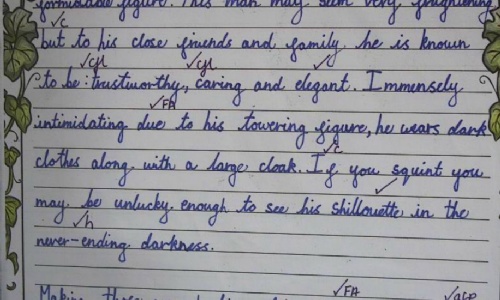 formidable figure. This man may seem very frightening
√c
but to his close friends and family he is known
√cyl √cyl √
to be: trustworthy, caring and elegant. Immensely
√FA
intimidating due to his towering figure, he wears dark
√c
clothes along with a large cloak. If you squint you
√
may be unlucky enough to see his shillouette in the
√h
never-ending darkness.
√FA